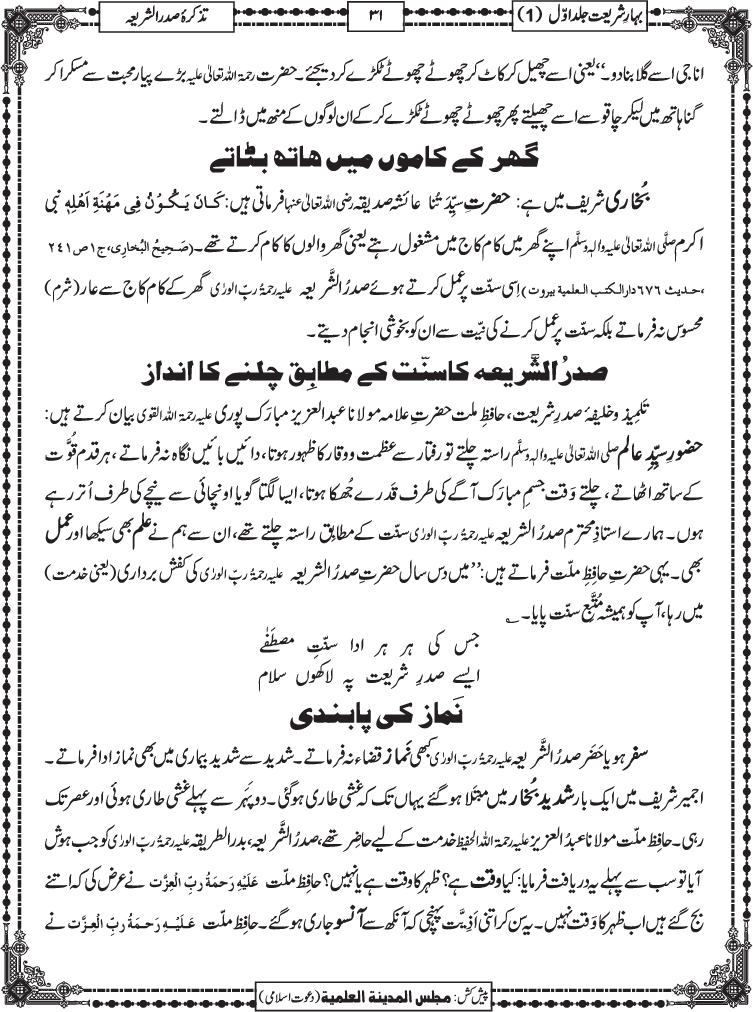 بہارِ شریعت جلد اوّل (1)
۳۱
تذکرۂ صدر الشریعہ
انا جی اسے گلا بنا دو۔‘‘ یعنی اسے چھیل کر کاٹ کر چھوٹے چھوٹے ٹکڑے کر دیجئے۔ حضرت رحمۃ اللہ تعالیٰ علیہ بڑے پیار محبت سے مسکرا کر
گنا ہاتھ میں لیکر چاقو سے اسے چھیلتے پھر چھوٹے چھوٹے ٹکڑے کر کے ان لوگوں کے منھ میں ڈالتے ۔
گھر کے کاموں میں ہاتھ بٹاتے
بُخاری شریف میں ہے: حضرتِ سیِّدَ تُنا عائشہ صدیقہ رضی اللہ تعالیٰ عنہا فرماتی ہیں: کَـانَ یَـکُـوْنُ فِی مَهْنَةِ اَهْلِهٖ نبی
اکرم صلَّی اللہ تعالیٰ علیہ واٰلہٖ وسلَّم اپنے گھر میں کام کاج میں مشغول رہتے یعنی گھر والوں کا کام کرتے تھے۔ (صَحِیحُ البُخارِی،ج۱ص۲٤۱
،حدیث ٦۷٦دارالکتب العلمیة بیروت) اِسی سنّت پر عمل کرتے ہوئے صدرُ الشَّریعہ علیہ رحمۃُ ربِّ الورٰی گھر کے کام کاج سے عار(شرم)
محسوس نہ فرماتے بلکہ سنّت پر عمل کرنے کی نیّت سے ان کو بخوشی انجام دیتے۔
صدرُ الشَّریعہ کا سنّت کے مطابِق چلنے کا انداز
تلمیذ و خلیفۂ صدرِ شریعت، حافِظِ ملت حضرتِ علامہ مولانا عبدالعزیز مبارَک پوری علیہ رحمۃ اللہ القوی بیان کرتے ہیں:
حضورِ سیِّدِ عالم صلَّی اللہ تعالیٰ علیہ واٰلہٖ وسلَّم راستہ چلتے تو رفتار سے عظمت و وقار کا ظہور ہوتا، دائیں بائیں نگاہ نہ فرماتے، ہر قدم قُوَّت
کے ساتھ اٹھاتے ، چلتے وَقت جسمِ مبارَک آگے کی طرف قدرے جُھکا ہوتا، ایسا لگتا گویا اونچائی سے نیچے کی طرف اُتر رہے
ہوں۔ ہمارے استاذِ محترم صدرُ الشریعہ علیہ رحمۃُ ربِّ الورٰی سنّت کے مطابق راستہ چلتے تھے، ان سے ہم نے علم بھی سیکھا اور عمل
بھی۔ یہی حضرتِ حافِظِ ملّت فرماتے ہیں: ’’میں دس سال حضرتِ صدرُ الشریعہ علیہ رحمۃُ ربِّ الورٰی کی کفش برداری (یعنی خدمت)
میں رہا، آپ کو ہمیشہ مُتَّبِعِ سنّت پایا۔
جس کی ہر ہر ادا سنّتِ مصطَفٰے
ایسے صدرِ شریعت پہ لاکھوں سلام
نَماز کی پابندی
سفر ہو یا حَضَر صدرُ الشَّریعہ علیہ رحمۃُ ربِّ الورٰی کبھی نَماز قضاء نہ فرماتے۔ شدید سے شدید بیماری میں بھی نماز ادا فرماتے۔
اجمیر شریف میں ایک بار شدید بُخار میں مبتَلا ہو گئے یہاں تک کہ غشی طاری ہو گئی۔ دو پہَر سے پہلے غشی طاری ہوئی اور عصر تک
رہی۔ حافظِ ملّت مولانا عبدُ العزیز علیہ رحمۃ اللہ الحفیظ خدمت کے لیے حاضِر تھے، صدرُ الشَّریعہ، بدرالطریقہ علیہ رحمۃُ ربِّ الورٰی کو جب ہوش
آیا تو سب سے پہلے یہ دریافت فرمایا: کیا وقت ہے؟ ظہر کا وقت ہے یا نہیں؟ حافظِ ملّت عَلَیْهِ رَحمَةُ ربِّ الْعِزَّت نے عرض کی کہ اتنے
بج گئے ہیں اب ظہر کا وَقت نہیں۔ یہ سن کر اتنی اَذِیَّت پہنچی کہ آنکھ سے آنسو جاری ہو گئے۔ حافِظِ ملّت عَلَیْهِ رَحمَةُ ربِّ الْعِزَّت نے
پیش کش: مجلس المدینة العلمیة (دعوت اسلامی)